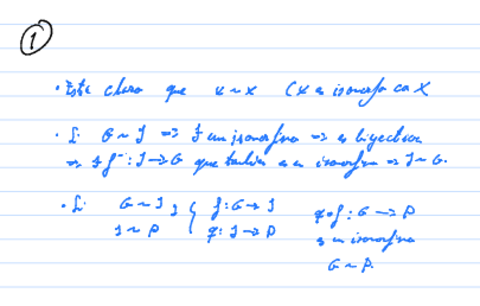 ①
• Está claro que x ~ x (x es isomorfo con X
• Si G ~ J => f un isomorfismo => es biyectiva
=> ∃ f⁻¹: J → G que también es un isomorfismo => J ~ G.
• Si G ~ J } { f: G → J g∘f: G → P
J ~ P g: J → P es un isomorfismo
G ~ P.